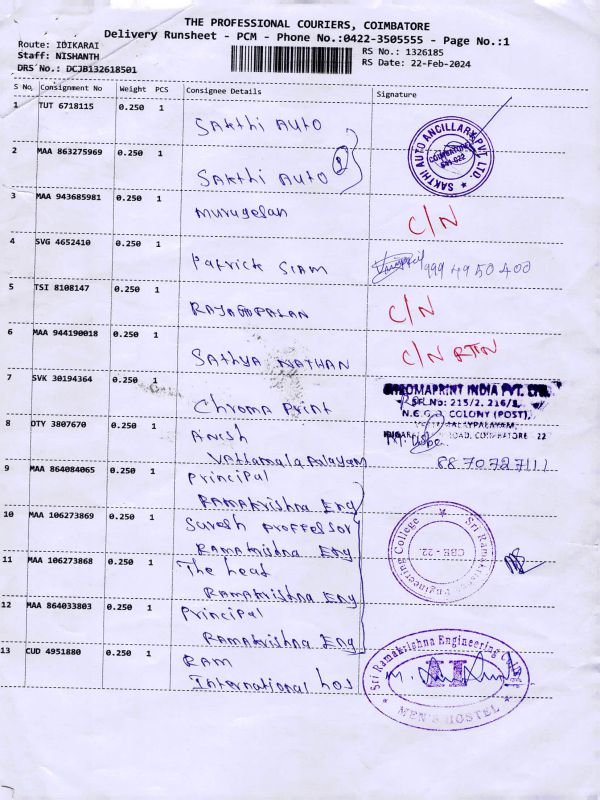 THE PROFESSIONAL COURIERS, COIMBATORE
Delivery Runsheet - PCM - Phone No.:0422-3505555 - Page No.:1
Route: IDIKARAI
Staff: NISHANTH
DRS No.: DCJB132618501
RS No.: 1326185
RS Date: 22-Feb-2024
S No. Consignment No Weight PCS Consignee Details Signature
1 TUT 6718115 0.250 1 Sakthi Auto
SAKTHI AUTO ANCILLARY PVT. LTD.
COIMBATORE
641 022
2 MAA 863275969 0.250 1 Sakthi Auto
3 MAA 943685981 0.250 1 Murugesan C/N
4 SVG 4652410 0.250 1 Patrick SIAM 9994950400
5 TSI 8108147 0.250 1 RAJAGOPALAN C/N
6 MAA 944190018 0.250 1 Sathya NATHAN C/N RTN
7 SVK 30194364 0.250 1 Chroma Print
CHROMAPRINT INDIA PVT. LTD.
SF.No: 215/2, 216/1,
N.G.G.O. COLONY (POST),
ROAD, COIMBATORE - 22
8 DTY 3807670 0.250 1 Anish
Vattamalapalayam 8870727111
9 MAA 864084065 0.250 1 Principal
Ramakrishna Eng
10 MAA 106273869 0.250 1 Suresh Proffessor
Ramakrishna Eng
Sri Ramakrishna Engineering College
CBE - 22.
11 MAA 106273868 0.250 1 The head
Ramakrishna Eng
12 MAA 864033803 0.250 1 Principal
Ramakrishna Eng
13 CUD 4951880 0.250 1 RAM
International hos
Sri Ramakrishna Engineering College
MEN'S HOSTEL